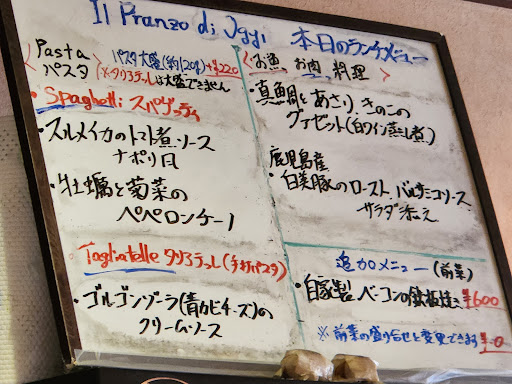 Il Pranzo di Oggi 本日のランチメニュー
Pasta パスタ大盛(約120g)+¥220
パスタ (※タリアテッレは大盛できません)
・Spaghetti スパゲッティ
・スルメイカのトマト煮ソース
ナポリ風
・牡蠣と菊菜の
ペペロンチーノ
Tagliatelle タリアテッレ(手打パスタ)
・ゴルゴンゾーラ(青カビチーズ)の
クリームソース
<お魚、お肉 料理>
・真鯛とあさり きのこの
グアゼット(白ワイン蒸し煮)
鹿児島産
・白美豚のロースト バルサミコソース
サラダ添え
追加メニュー (前菜)
・自家製 ベーコンの鉄板焼き ¥600
※前菜の盛り合せと変更できます